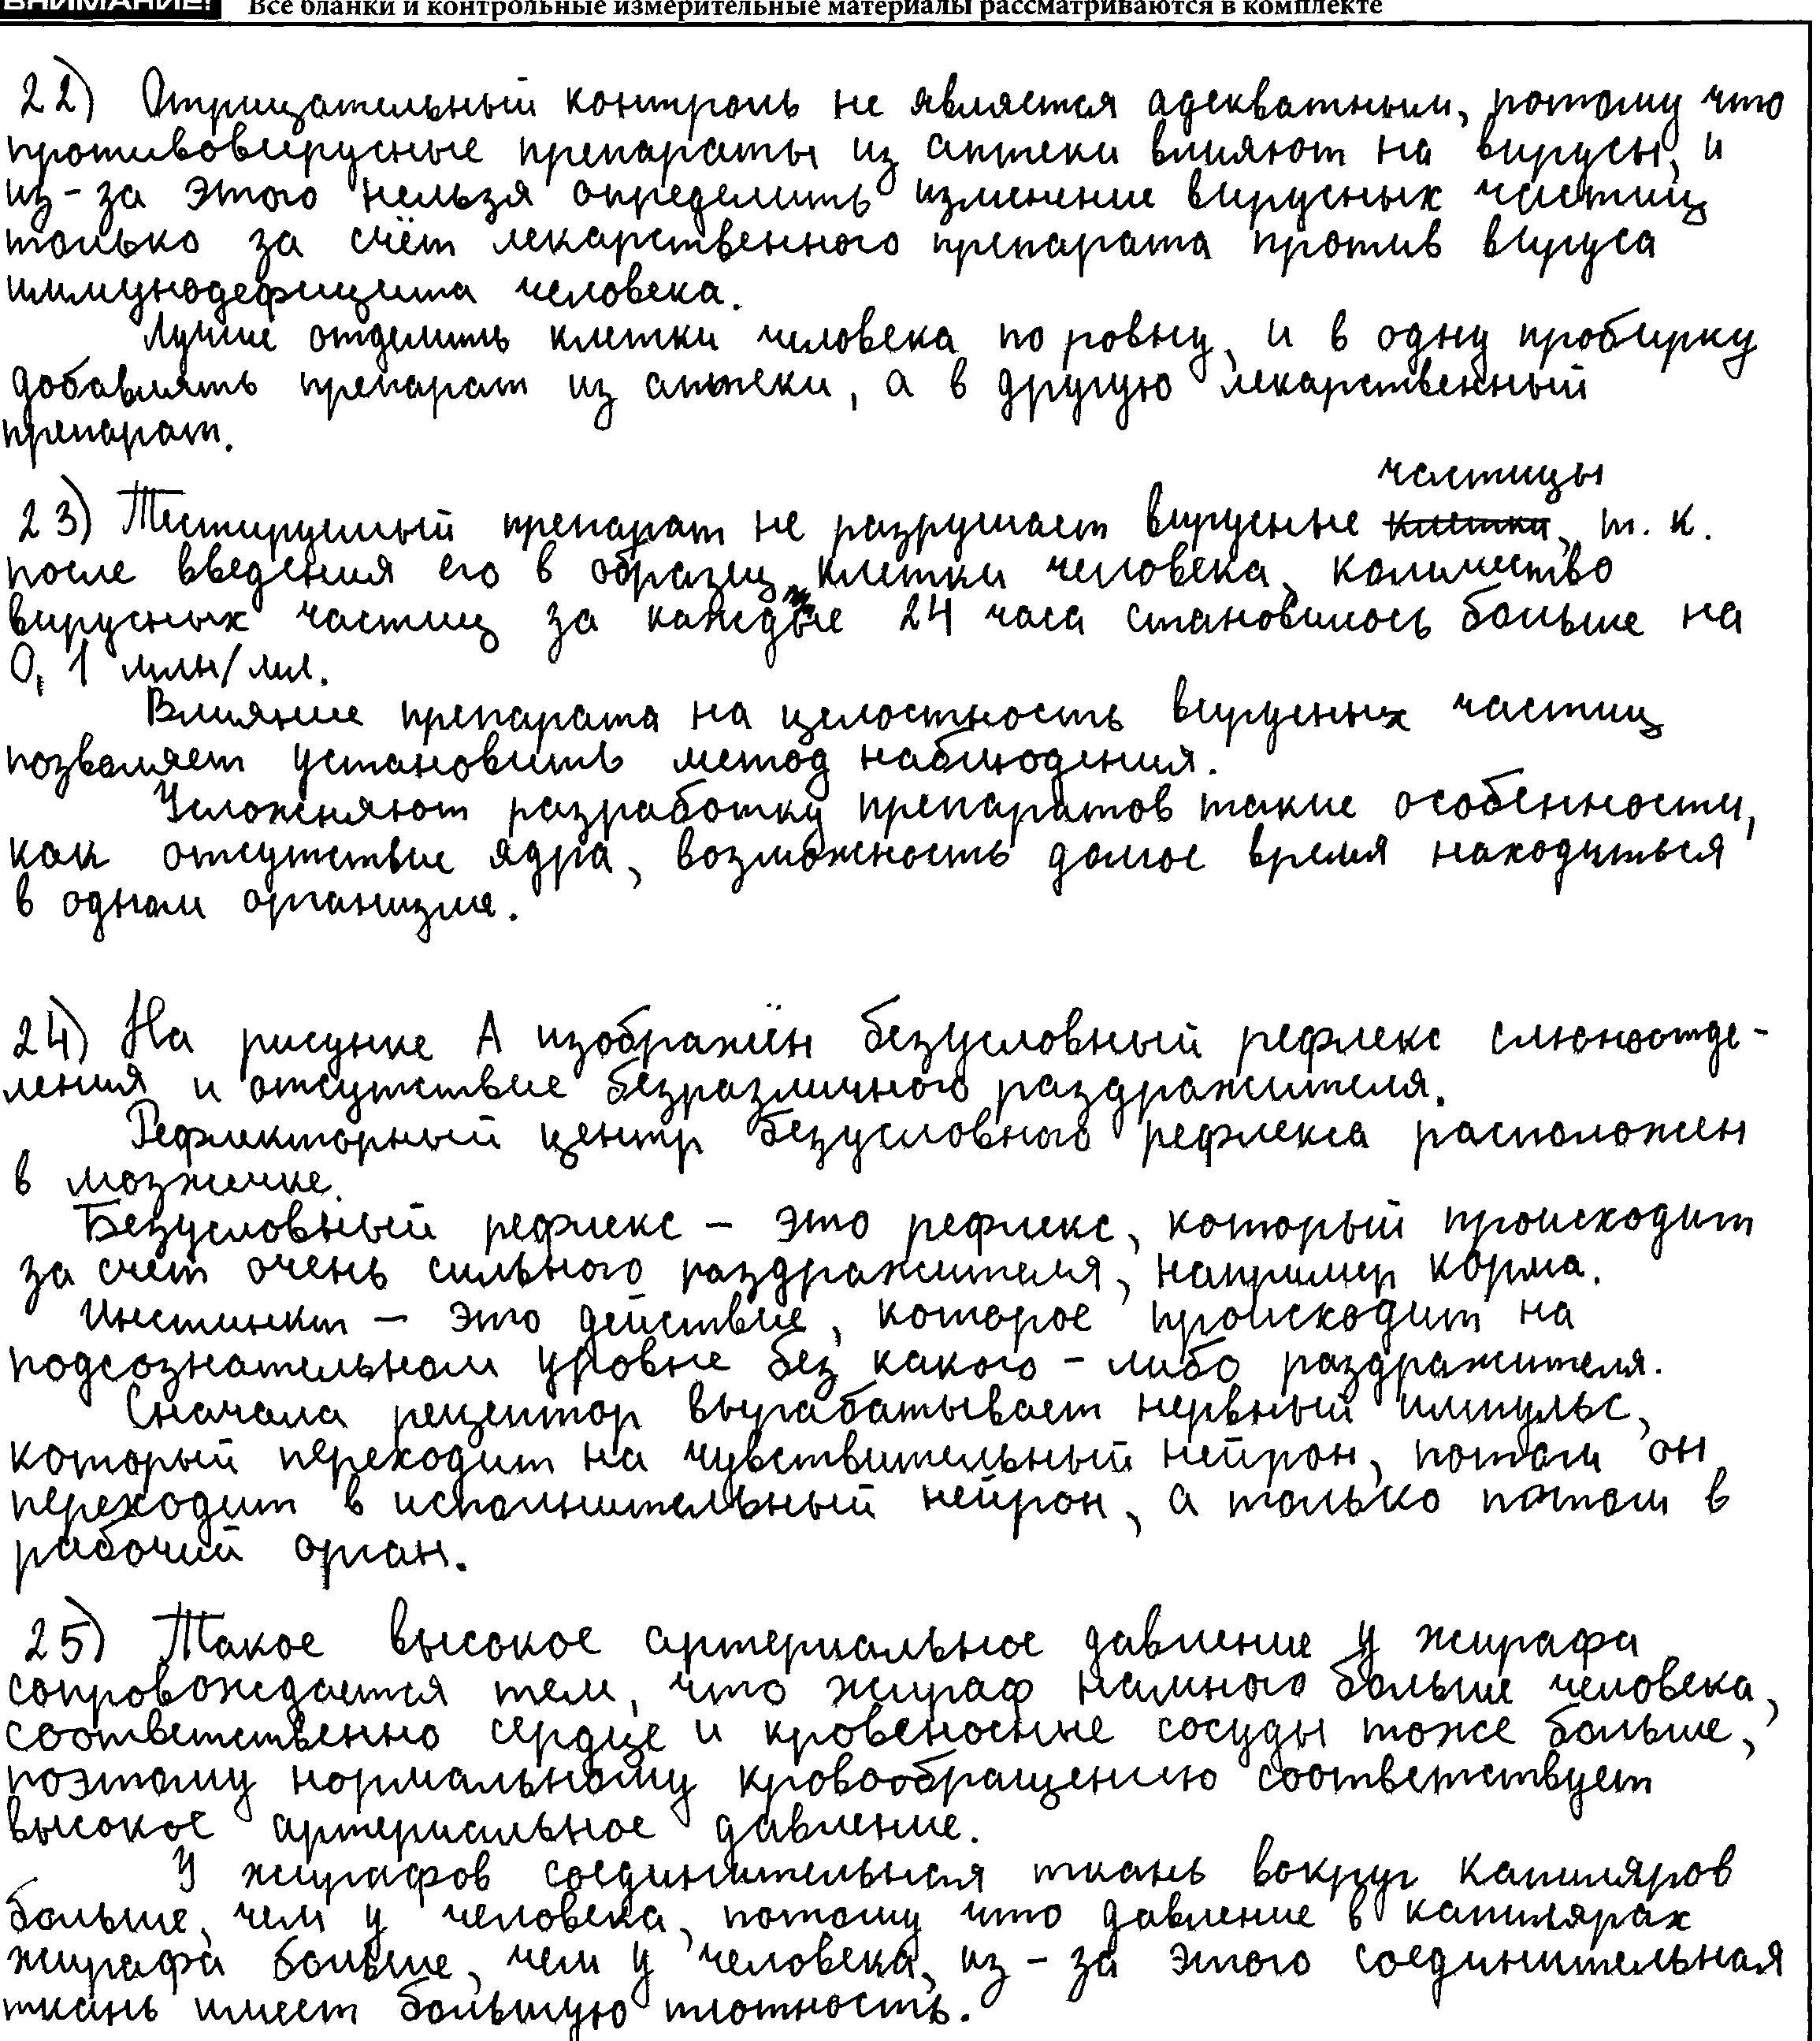 ВНИМАНИЕ! Все бланки и контрольные измерительные материалы рассматриваются в комплекте
22) Отрицательный контроль не является адекватным, потому что
противовирусные препараты из аптеки влияют на вирусы, и
из-за этого нельзя определить изменение вирусных частиц
только за счёт лекарственного препарата против вируса
иммунодефицита человека.
Лучше отделить клетки человека по ровну, и в одну пробирку
добавлять препарат из аптеки, а в другую лекарственный
препарат.
частицы
23) Тестируемый препарат не разрушает вирусные клетки, т. к.
после введения его в образец клетки человека, количество
вирусных частиц за каждые 24 часа становилось больше на
0,1 млн/мл.
Влияние препарата на целостность вирусных частиц
позволяет установить метод наблюдения.
Усложняют разработку препаратов такие особенности,
как отсутствие ядра, возможность долгое время находиться
в одном организме.
24) На рисунке А изображён безусловный рефлекс слюноотде-
ления и отсутствие безразличного раздражителя.
Рефлекторный центр безусловного рефлекса расположен
в мозжечке.
Безусловный рефлекс – это рефлекс, который происходит
за счет очень сильного раздражителя, например корма.
Инстинкт – это действие, которое происходит на
подсознательном уровне без какого-либо раздражителя.
Сначала рецептор вырабатывает нервный импульс,
который переходит на чувствительный нейрон, потом он
переходит в исполнительный нейрон, а только потом в
рабочий орган.
25) Такое высокое артериальное давление у жирафа
сопровождается тем, что жираф намного больше человека,
соответственно сердце и кровеносные сосуды тоже больше,
поэтому нормальному кровообращению соответствует
высокое артериальное давление.
У жирафов соединительная ткань вокруг капиляров
больше, чем у человека, потому что давление в капилярах
жирафа больше, чем у человека, из-за этого соединительная
ткань имеет большую плотность.